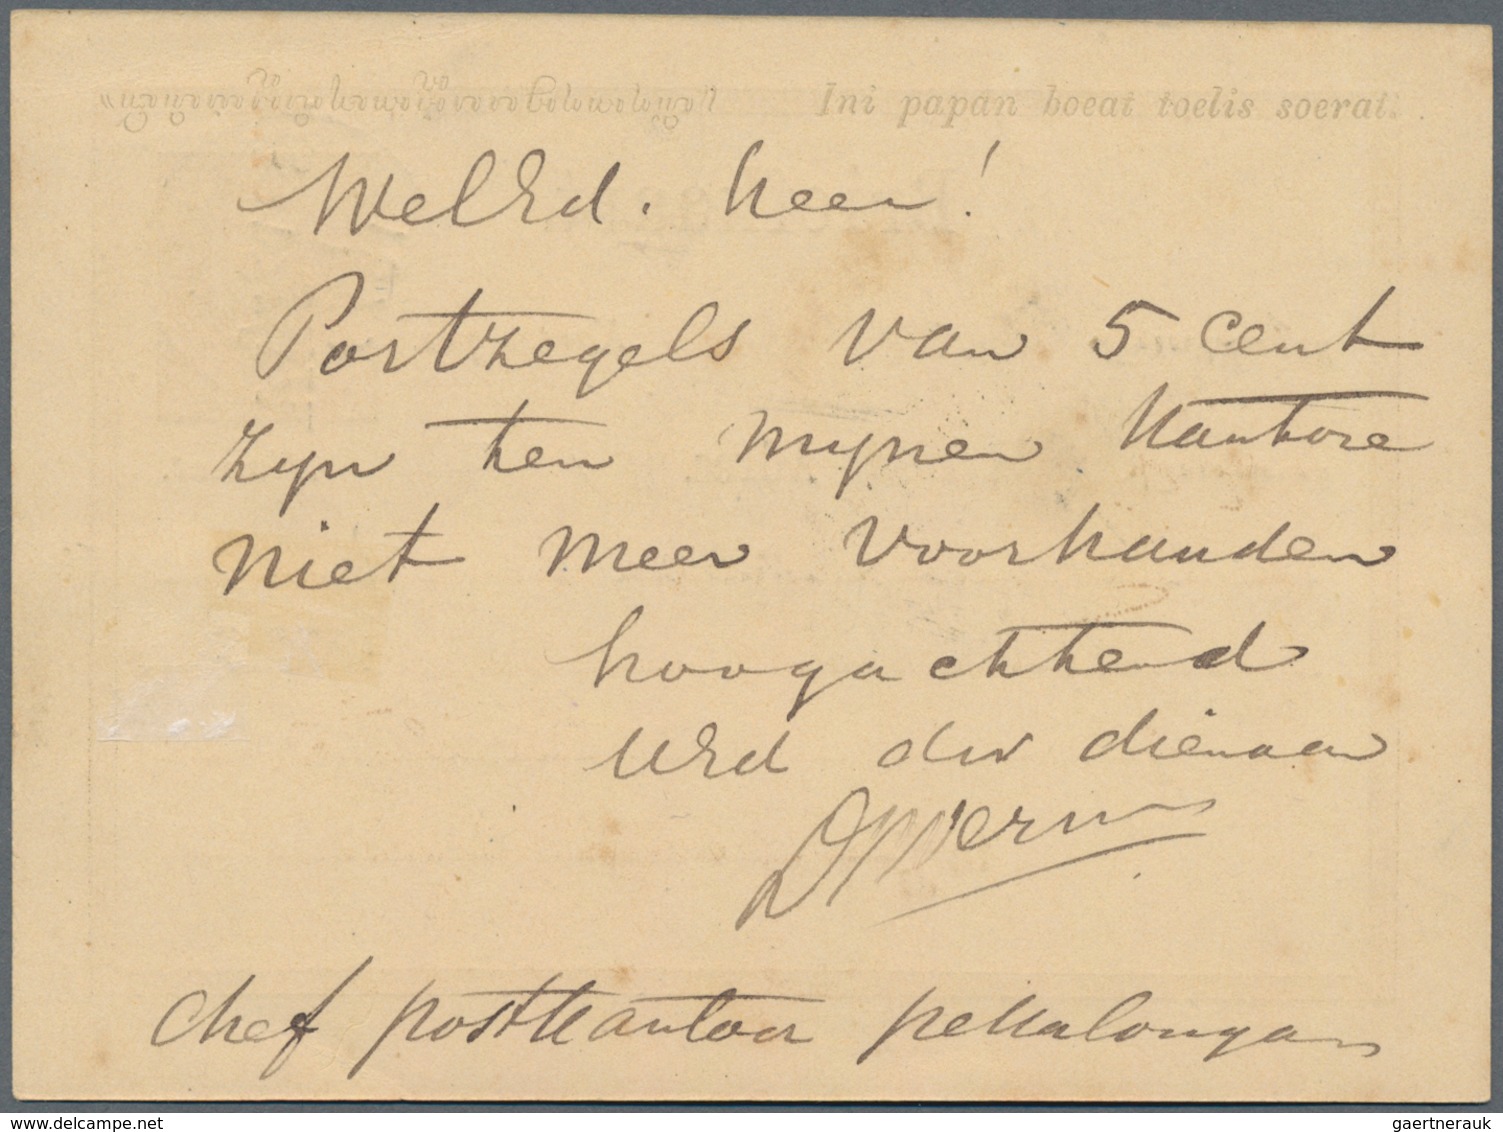 Ini papan boeat toelis soerat.
WelEd. heer!
Postzegels van 5 cent
zyn ten mynen kantore
niet meer voorhanden
hoogachtend
UEd dw dienaar
chef postkantoor pekkalongan
gaertnerauk@delcampe.net